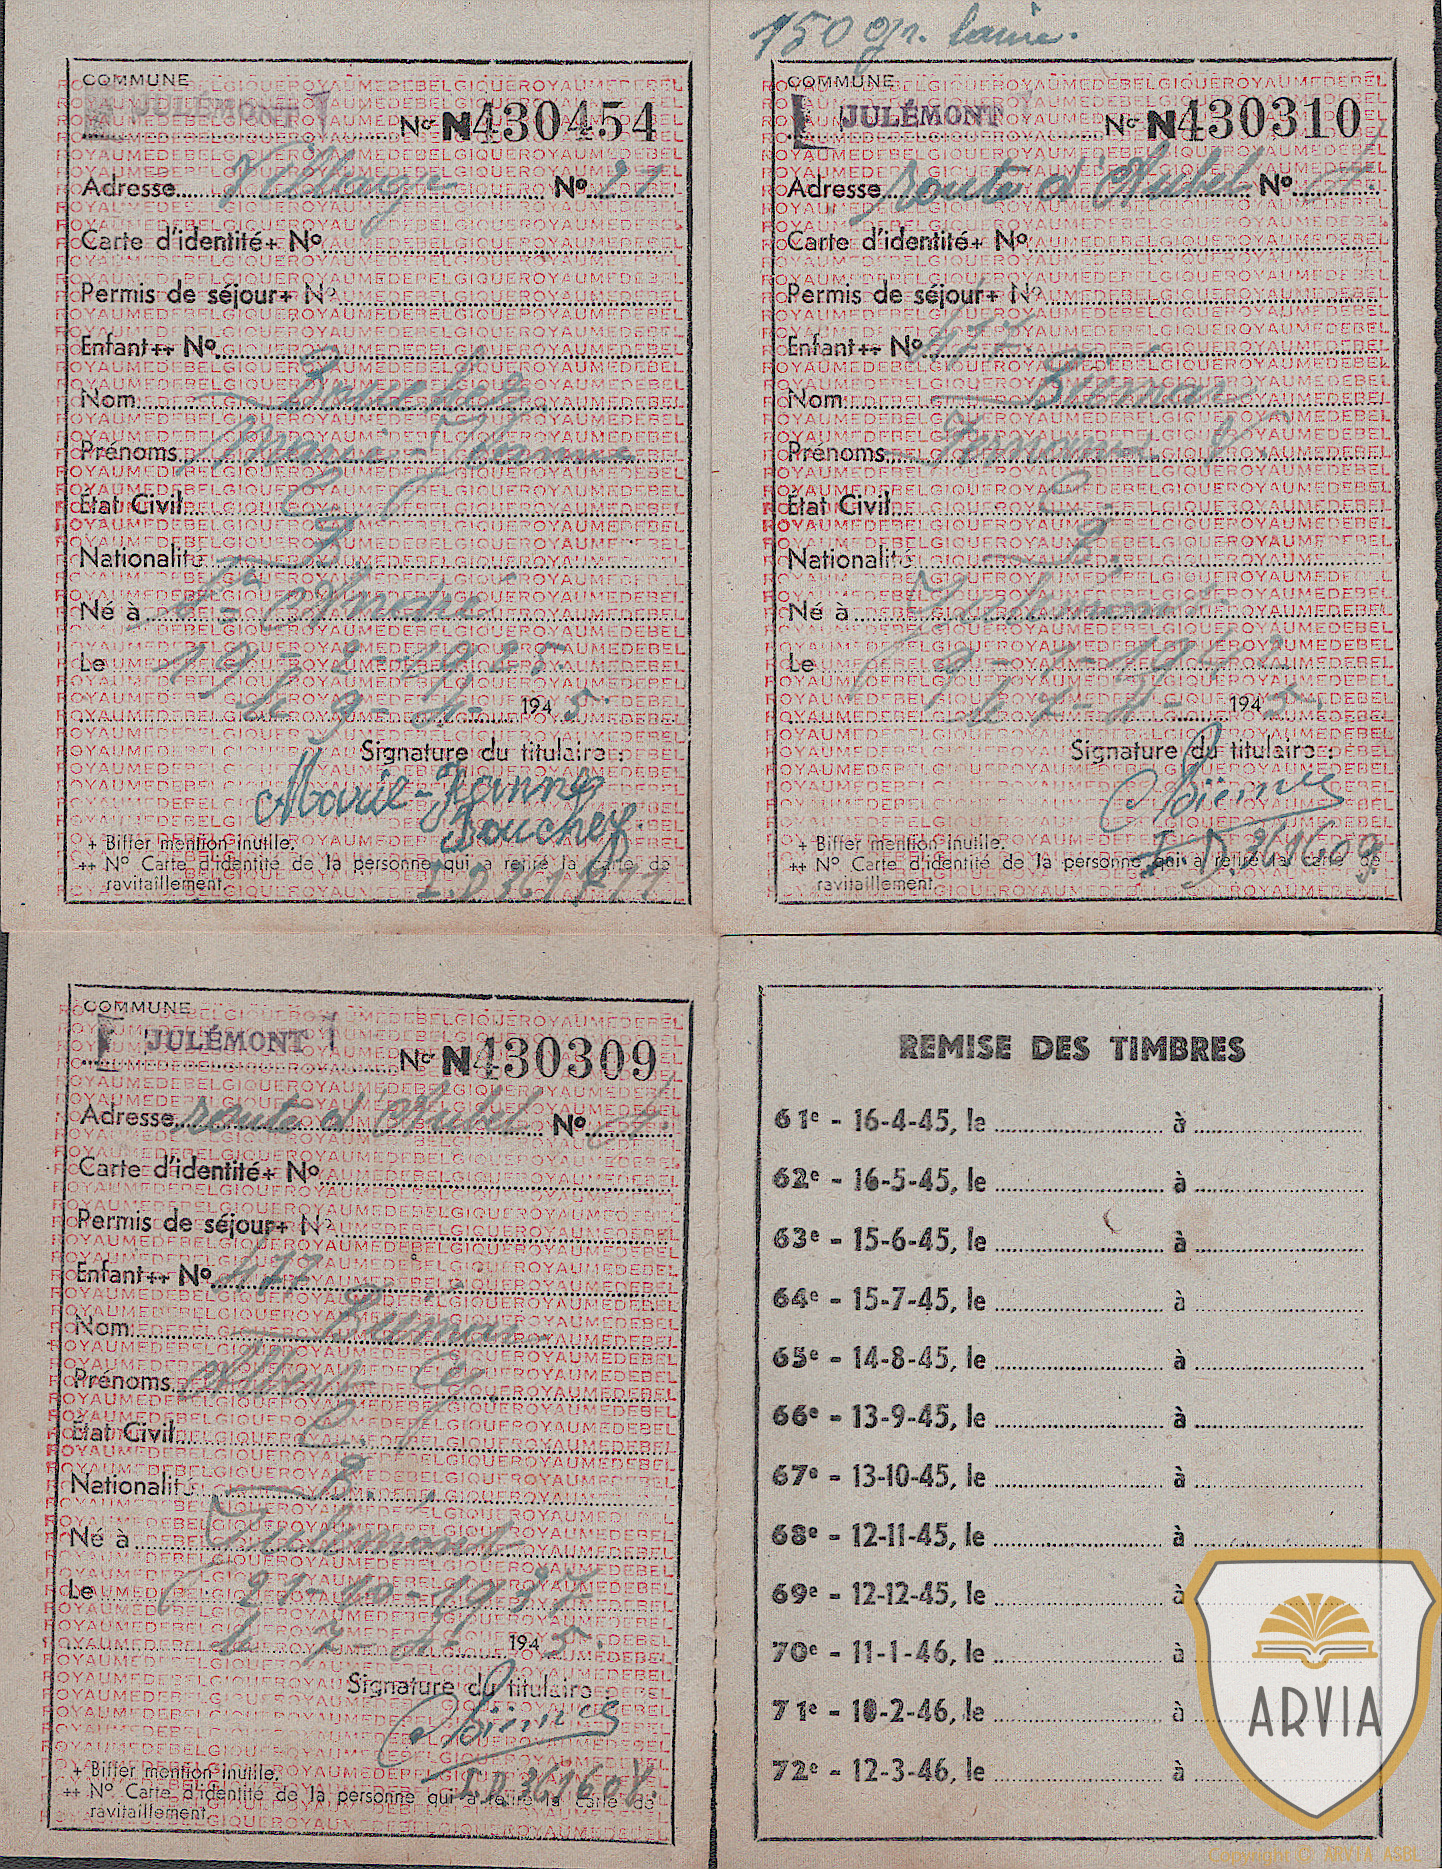 COMMUNE
JULÉMONT
Nr N430454
Adresse Village No 21
Carte d'identité+ No
Permis de séjour+ No
Enfant++ No
Nom
Prénoms
Etat Civil C.
Nationalité B.
Né à St André
Le 19-2-1925
le 9-4- 1945.
Signature du titulaire :
Marie-Jeanne
+ Biffer mention inutile.
++ No Carte d'identité de la personne qui a retiré la carte de
ravitaillement.
150 gr. laine.
COMMUNE
JULÉMONT
Nr N430310
Adresse route d'Aubel No
Carte d'identité+ No
Permis de séjour+ No
Enfant++ No 477
Nom
Prénoms
Etat Civil C.
Nationalité B.
Né à Julémont
Le
le 7-4- 1945.
Signature du titulaire :
I.D. 361609
+ Biffer mention inutile.
++ No Carte d'identité de la personne qui a retiré la carte de
ravitaillement.
COMMUNE
JULÉMONT
Nr N430309
Adresse route d'Aubel No
Carte d'identité+ No
Permis de séjour+ No
Enfant++ No 477
Nom
Prénoms Albert
Etat Civil C.
Nationalité B.
Né à Julémont
Le 21-10-1937
le 7-4- 1945.
Signature du titulaire :
+ Biffer mention inutile.
++ No Carte d'identité de la personne qui a retiré la carte de
ravitaillement.
REMISE DES TIMBRES
61e - 16-4-45, le à
62e - 16-5-45, le à
63e - 15-6-45, le à
64e - 15-7-45, le à
65e - 14-8-45, le à
66e - 13-9-45, le à
67e - 13-10-45, le à
68e - 12-11-45, le à
69e - 12-12-45, le à
70e - 11-1-46, le à
71e - 10-2-46, le à
72e - 12-3-46, le à
ARVIA
Copyright (C) ARVIA ASBL